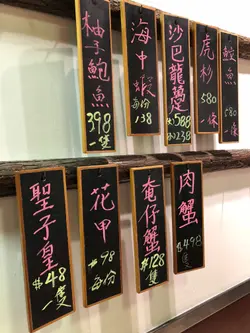 柚子鮑魚
398
一隻
海中蝦
每份
138
沙巴龍躉
虎杉
580
一條
聖子皇
$48
一隻
花甲
$98
每份
奄仔蟹
$128
隻
肉蟹
$498
隻